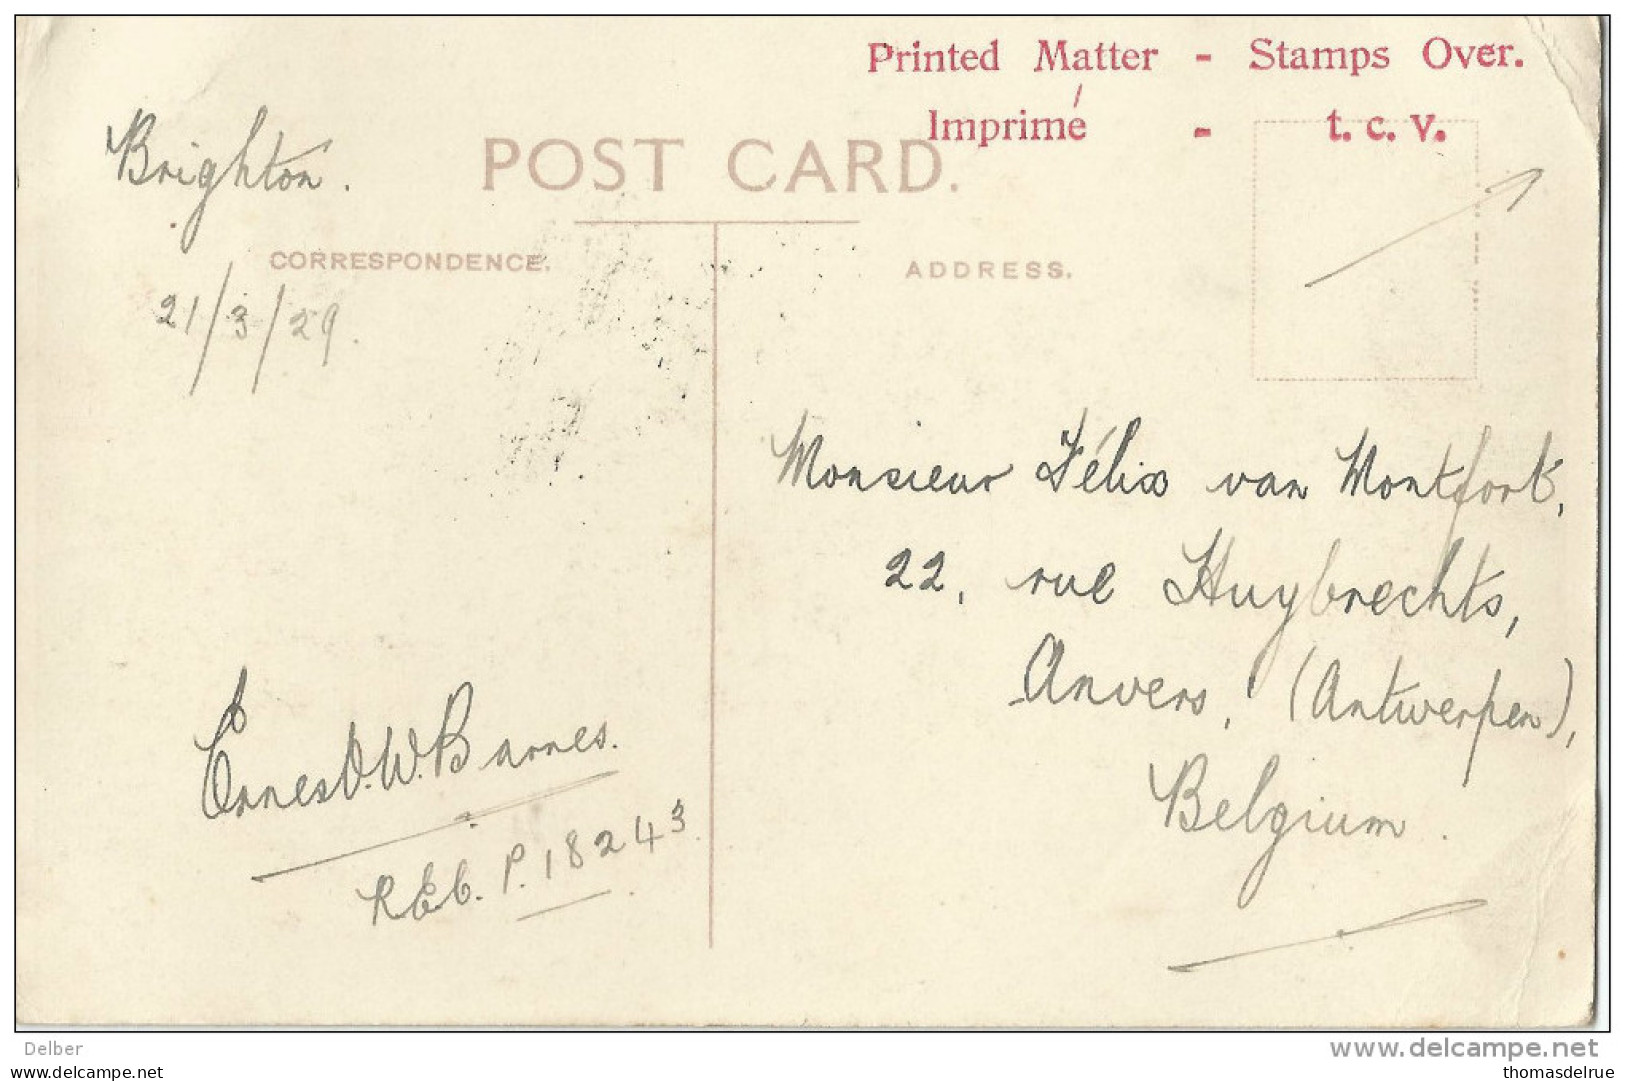 Printed Matter - Stamps Over.
Imprimé - t. c. v.
Brighton.
POST CARD.
CORRESPONDENCE.
ADDRESS.
21/3/29.
Monsieur Félix van Montfort,
22, rue Huybrechts,
Anvers, (Antwerpen),
Belgium.
Ernest. W. Barnes.
P. 18243
Delber
delcampe.net
www.delcampe.net
thomasdelrue